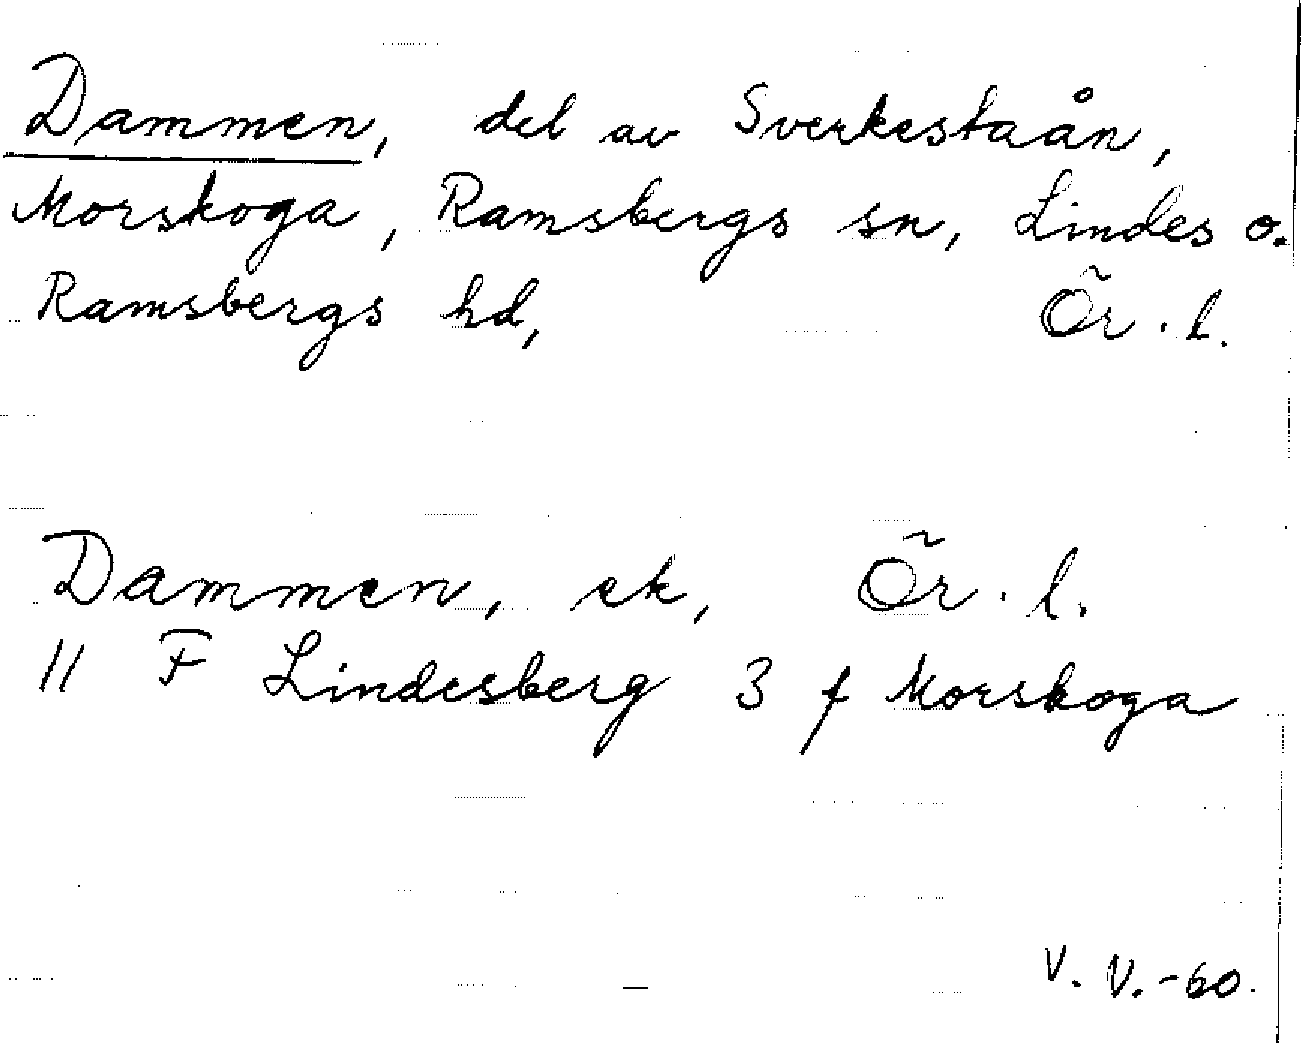 Dammen, del av Sverkestaån,
Morskoga, Ramsbergs sn, Lindes o.
Ramsbergs hd, Ör. l.
Dammen, ek, Ör. l.
11 F Lindesberg 3 f Morskoga
V. V. -60.